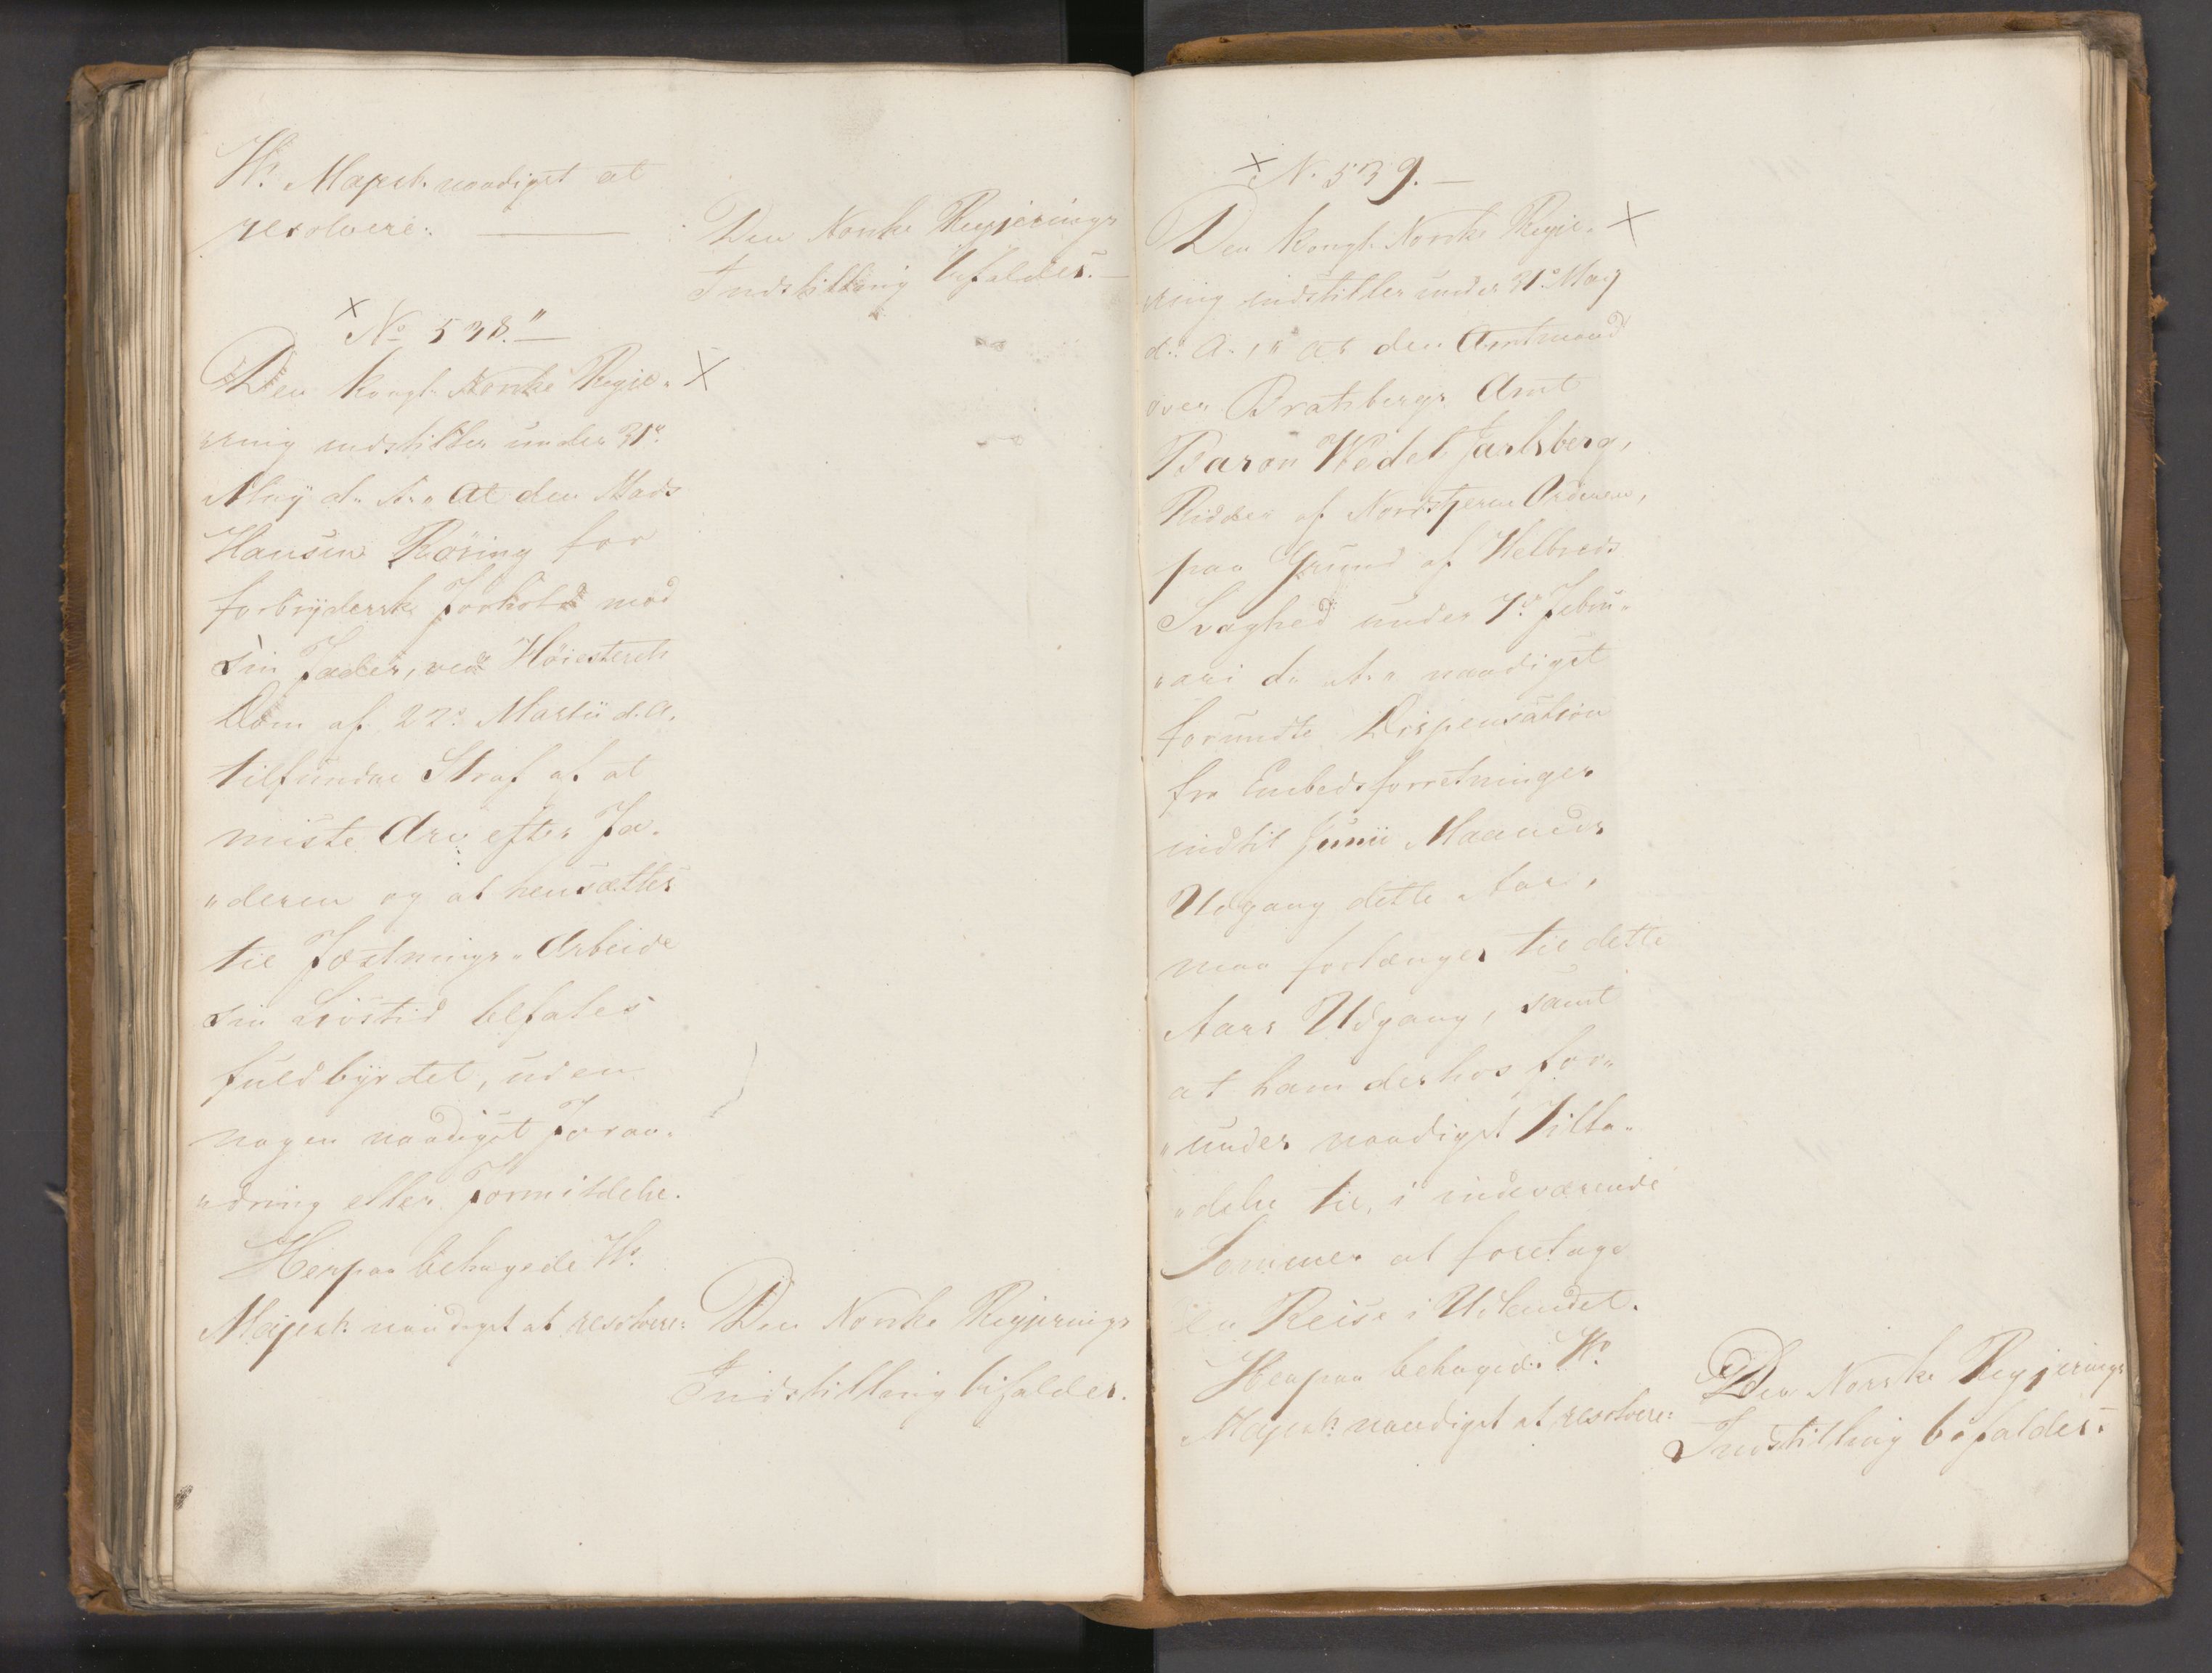 Hs. Majestt. naadigst at
resolvere:
Den Norske Regjerings
Indstilling bifaldes.
× No 538."
Den kongl. Norske Regje" ×
ring indstiller under 31te
May d. A. " at den Mads
Hansen Röring for
forbrydersk Forhold mod
sin Fader, ved Höiesterets
Dom af 22de Martii d. A.
tilfundne Straf af at
miste Arv efter Fa"
"deren og at hensættes
til Fæstnings" Arbeide
sin Livstid befales
fuldbyrdet, uden
nogen naadigst Foran"
"dring eller Formildelse.
Herpaa behagede Hs.
Majestt. naadigst at resolvere:
Den Norske Regjerings
Indstilling bifaldes.
× N. 539.
Den kongl. Norske Regje" ×
ring indstiller under 31te May
d. A., " at den Amtmand
over Bratsbergs Amt
Baron Wedel Jarlsberg,
Ridder af Nordstjerne Ordenen,
paa Grund af Helbreds
Svaghed under 7de Febru"
"ari d. A. " naadigst
forundte Dispensation
fra Embedsforretninger
indtil Junii Maaneds
Udgang dette Aar,
maa forlænges til dette
Aars Udgang, samt
at ham derhos for"
"undes naadigst Tilla"
"delse til, i indeværende
Sommer at foretage
en Reise i Udlandet.
Herpaa behagede Hs.
Majestt. naadigst at resolvere:
Den Norske Regjerings
Indstilling bifaldes.